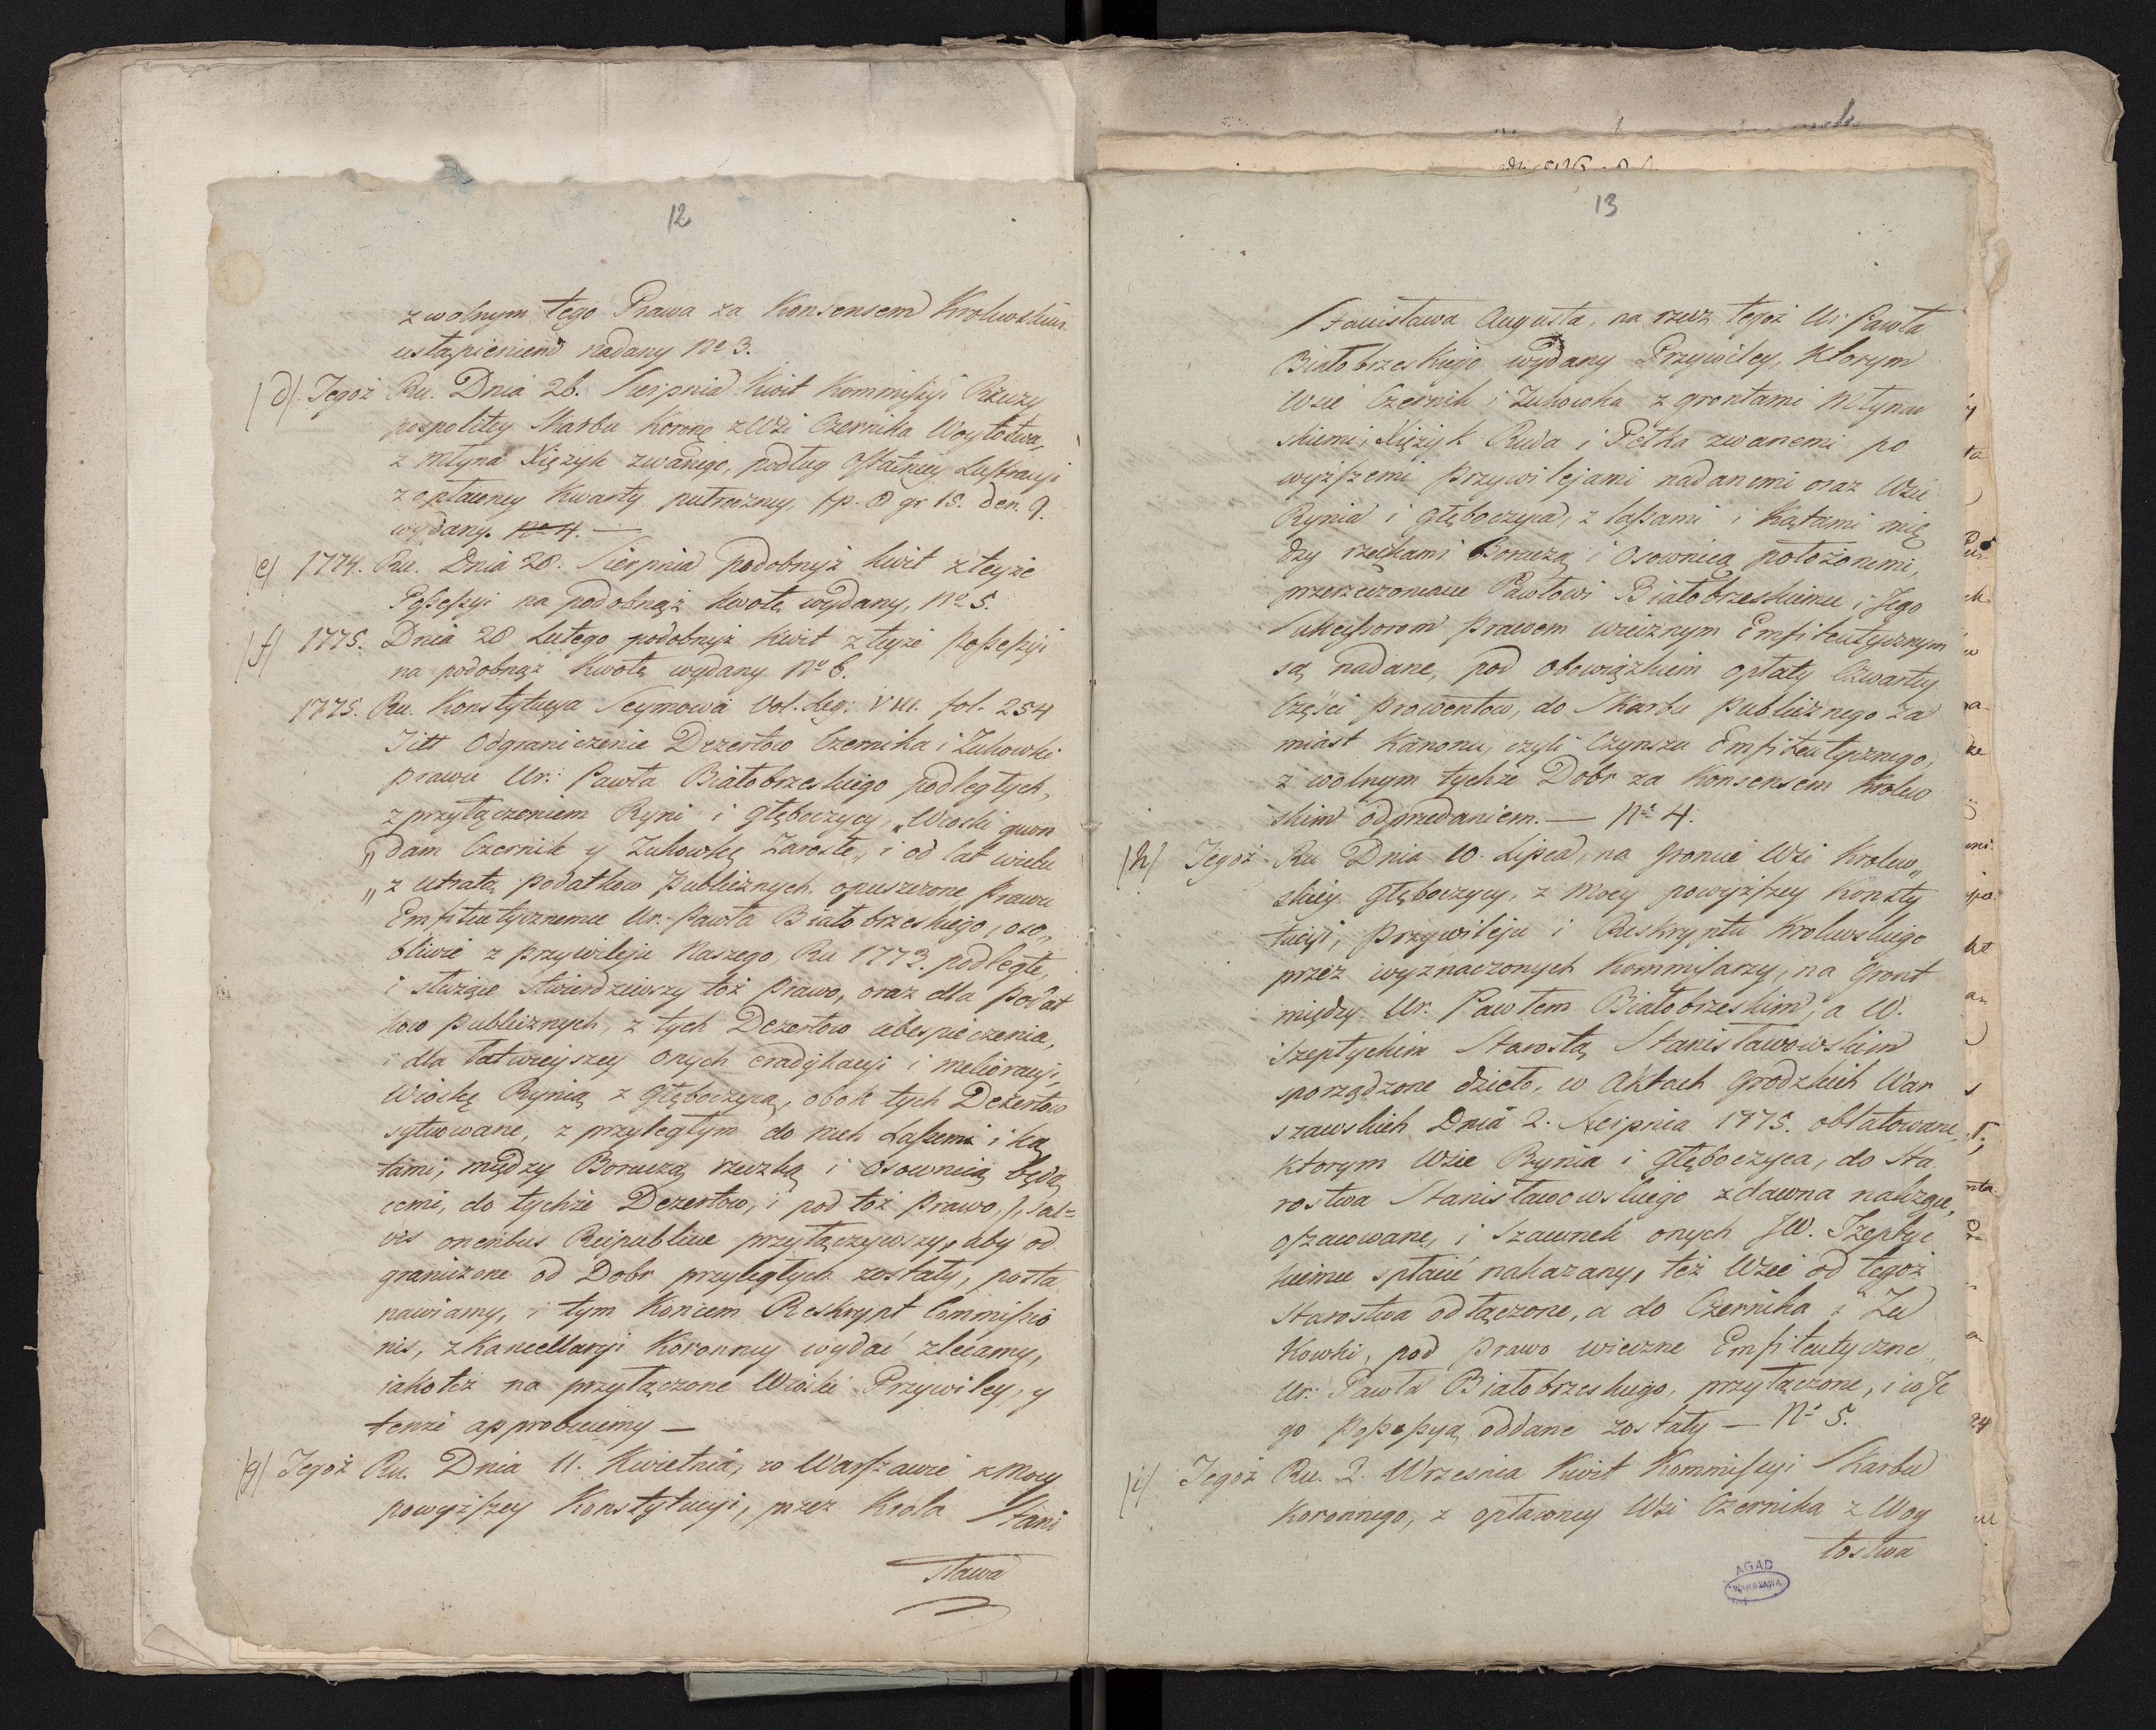 12
z wolnym tego Prawa za Konsensem Krolewskim
ustąpieniem nadany No 3.
/d/ Tegoż Ru. Dnia 26. Sierpnia Kwit Kommissyi Rzeczy
pospolitey Skarbu Koronę z Wsi Czernika Woytostwa,
z Młyna Xiężyk zwanego, podług Ostatniey Lustracyi
z opłaconey Kwarty putroczney, fp. 8 gr 15. den. 9.
wydany. No 4. —
/e/ 1774. Ru. Dnia 28. Sierpnia podobnyż kwit z teyże
Possessyi na podobnąż kwotę wydany, No 5.
/f/ 1775. Dnia 28 Lutego podobnyż Kwit z teyże possessyi
na podobnąż Kwotę wydany No 6.
1775. Ru. Konstytucya Seymowa Vol. Leg: VIII. fol. 254
Titt Odgraniczenie Dezertow Czernika i Zukowki
prawu Ur: Pawła Białobrzeskiego podległych,
z przyłączeniem Ryni i Głęboczycy, „Wioski quon
„dam Czernik y Zukowkę Zarosłe, i od lat wielu
„z utratą podatkow publicznych opuszczone, prawu
Emfiteutycznemu Ur. Pawła Białobrzeskiego, oso„
bliwie z przywileju Naszego, Ru 1773. podległe,
i służące stwierdziwszy toż prawo, oraz dla podat
kow publicznych, z tych Dezertow ubespieczenia,
i dla łatwieyszey onych eradykacyi i melioracyi,
Wioskę Rynią z Głęboczycą, obok tych Dezertow
sytuowane, z przyległym do nich Lassemi i ką
tami, między Boruczą rzeczką i Osownicą będą
cemi, do tychże Dezertow, i pod toż prawo, /: Sal=
vis oneribus Reipublicae przyłączywszy, aby od
graniczone od Dobr przyległych zostały, posta
nawiamy, i tym Koncem Reskrypt Commissio
nis, z Kancellaryi Koronney wydać zlecamy,
iakoteż na przyłączone Wioski Przywiley, y
tenże approbuiemy —
/g/ Tegoż Ru. Dnia 11. Kwietnia, w Warszawie z Mocy
powyższey Konstytucyi, przez Krola Stani
sława
13
Stanisława Augusta, na rzecz tegoż Ur Pawła
Białobrzeskiego wydany Przywiley, Ktorym
Wsie Czernik i Zukowka z grontami Młynar
skiemi, Xiężyk Ruda i Petka zwanemi po
wyższemi przywilejami nadanemi oraz Wsie
Rynia i Głęboczyca, z lassami i Kątami mię
dzy rzekami Boruczą i Osownicą położonemi,
przerzeczonemu Pawłowi Białobrzeskiemu i Jego
Sukcessorom prawem wiecznym Emfiteutycznym
są nadane, pod obowiązkiem opłaty Czwartey
Części prowentow, do Skarbu publicznego za
miast Kanonu, czyli Czynszu Emfiteutycznego,
z wolnym tychże Dobr za Konsensem Krolew
skim odprzedaniem. — No 4.
/h/ Tegoż Ru Dnia 10. Lipca, na Groncie Wsi Krolew„
skiey Głęboczycy, z Mocy powyższey Konsty
tucyi, przywileju i Reskryptu Krolewskiego
przez wyznaczonych Kommissarzy, na Gront
między Ur. Pawłem Białobrzeskim, a W.
Szeptyckim Starostą Stanisławowskim
sporządzone dzieło, w Aktach Grodzkich War
szawskich Dnia 2. Sierpnia 1775. oblatowane,
Ktorym Wsie Rynia i Głęboczyca, do Sta
rostwa Stanisławowskiego zdawna należące,
oszacowane, i szacunek onych JW. Szeptyc
kiemu spłacić nakazany, też Wsie od tegoż
Starostwa odłączone, a do Czernika i Zu
kowki, pod prawo wieczne Emfiteutyczne
Ur: Pawła Białobrzeskiego, przyłączone, i w Je
go possessyą oddane zostały — No 5.
/i/ Tegoż Ru. 2. Wrzesnia Kwit Kommissyi Skarbu
Koronnego, z opłaconey Wsi Czernika z Woy
tostwa
AGAD
WARSZAWA